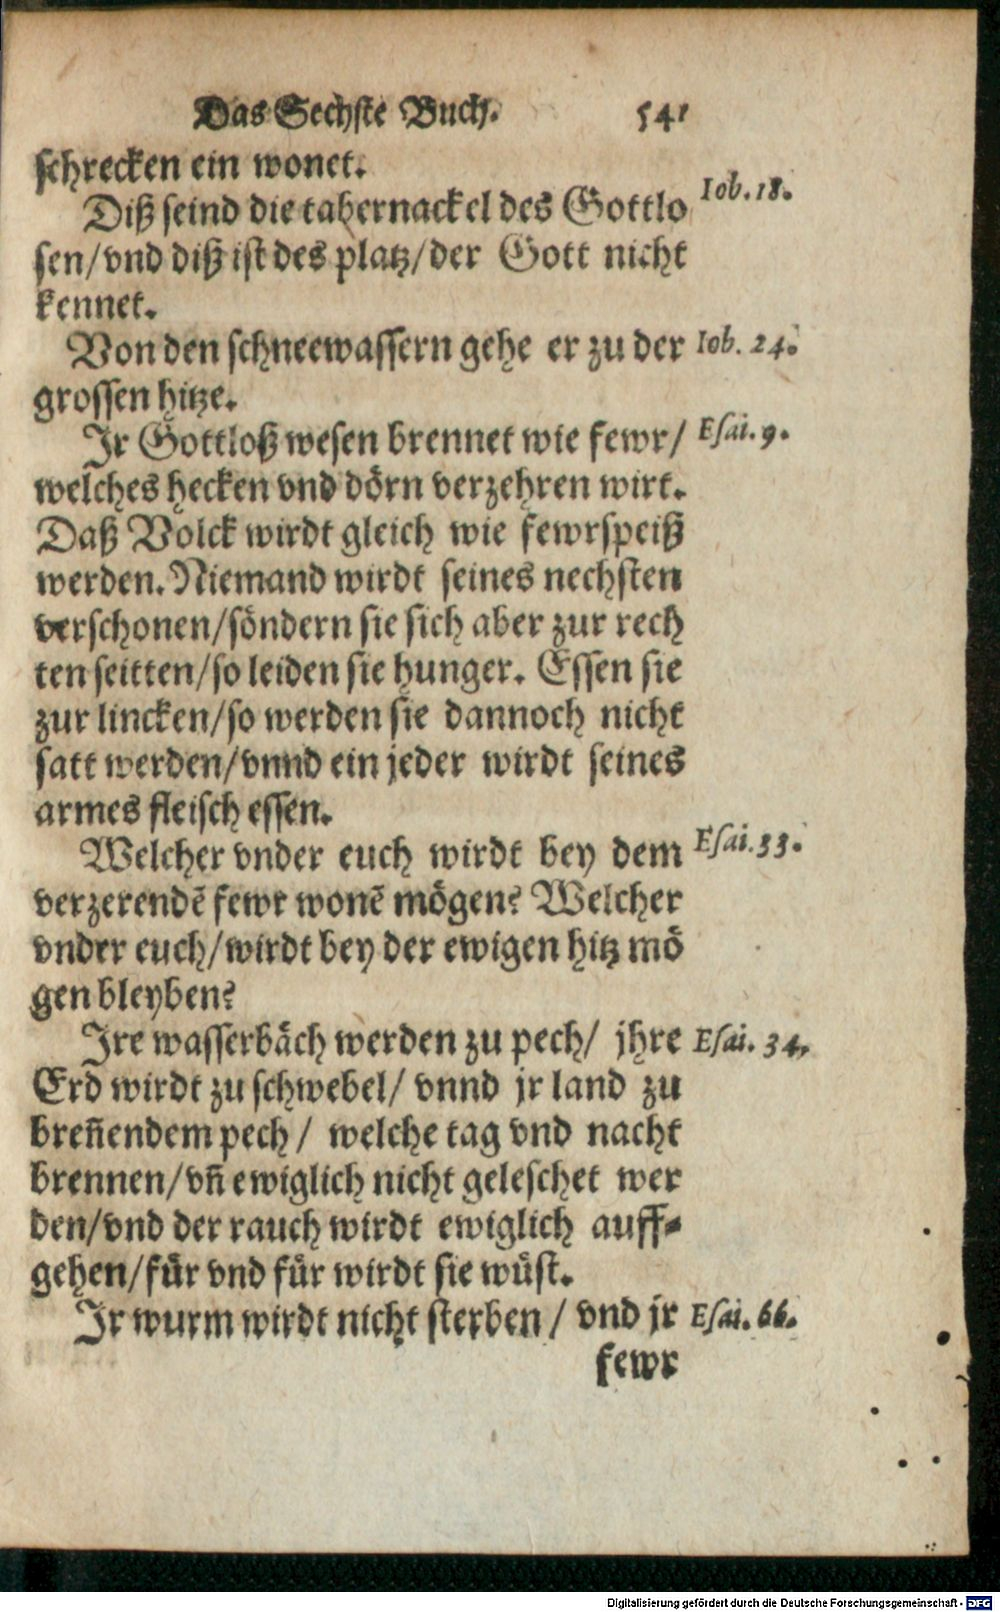 Das Sechste Buch. 541
schrecken ein wonet.
Diß seind die tabernackel des Gottlo Iob. 18.
sen/vnd diß ist des platz/der Gott nicht
kennet.
Von den schneewassern gehe er zu der Iob. 24.
grossen hitze.
Ir Gottloß wesen brennet wie fewr/ Esai. 9.
welches hecken vnd dörn verzehren wirt.
Daß Volck wirdt gleich wie fewrspeiß
werden. Niemand wirdt seines nechsten
verschonen/söndern sie sich aber zur rech
ten seitten/so leiden sie hunger. Essen sie
zur lincken/so werden sie dannoch nicht
satt werden/vnnd ein jeder wirdt seines
armes fleisch essen.
Welcher vnder euch wirdt bey dem Esai. 33.
verzerendē fewr wonē mögen? Welcher
vnder euch/wirdt bey der ewigen hitz mö
gen bleyben?
Ire wasserbäch werden zu pech/ jhre Esai. 34,
Erd wirdt zu schwebel/ vnnd jr land zu
breñendem pech/ welche tag vnd nacht
brennen/vñ ewiglich nicht geleschet wer
den/vnd der rauch wirdt ewiglich auff-
gehen/für vnd für wirdt sie wüst.
Ir wurm wirdt nicht sterben/ vnd jr Esai. 66.
fewr
Digitalisierung gefördert durch die Deutsche Forschungsgemeinschaft - DFG